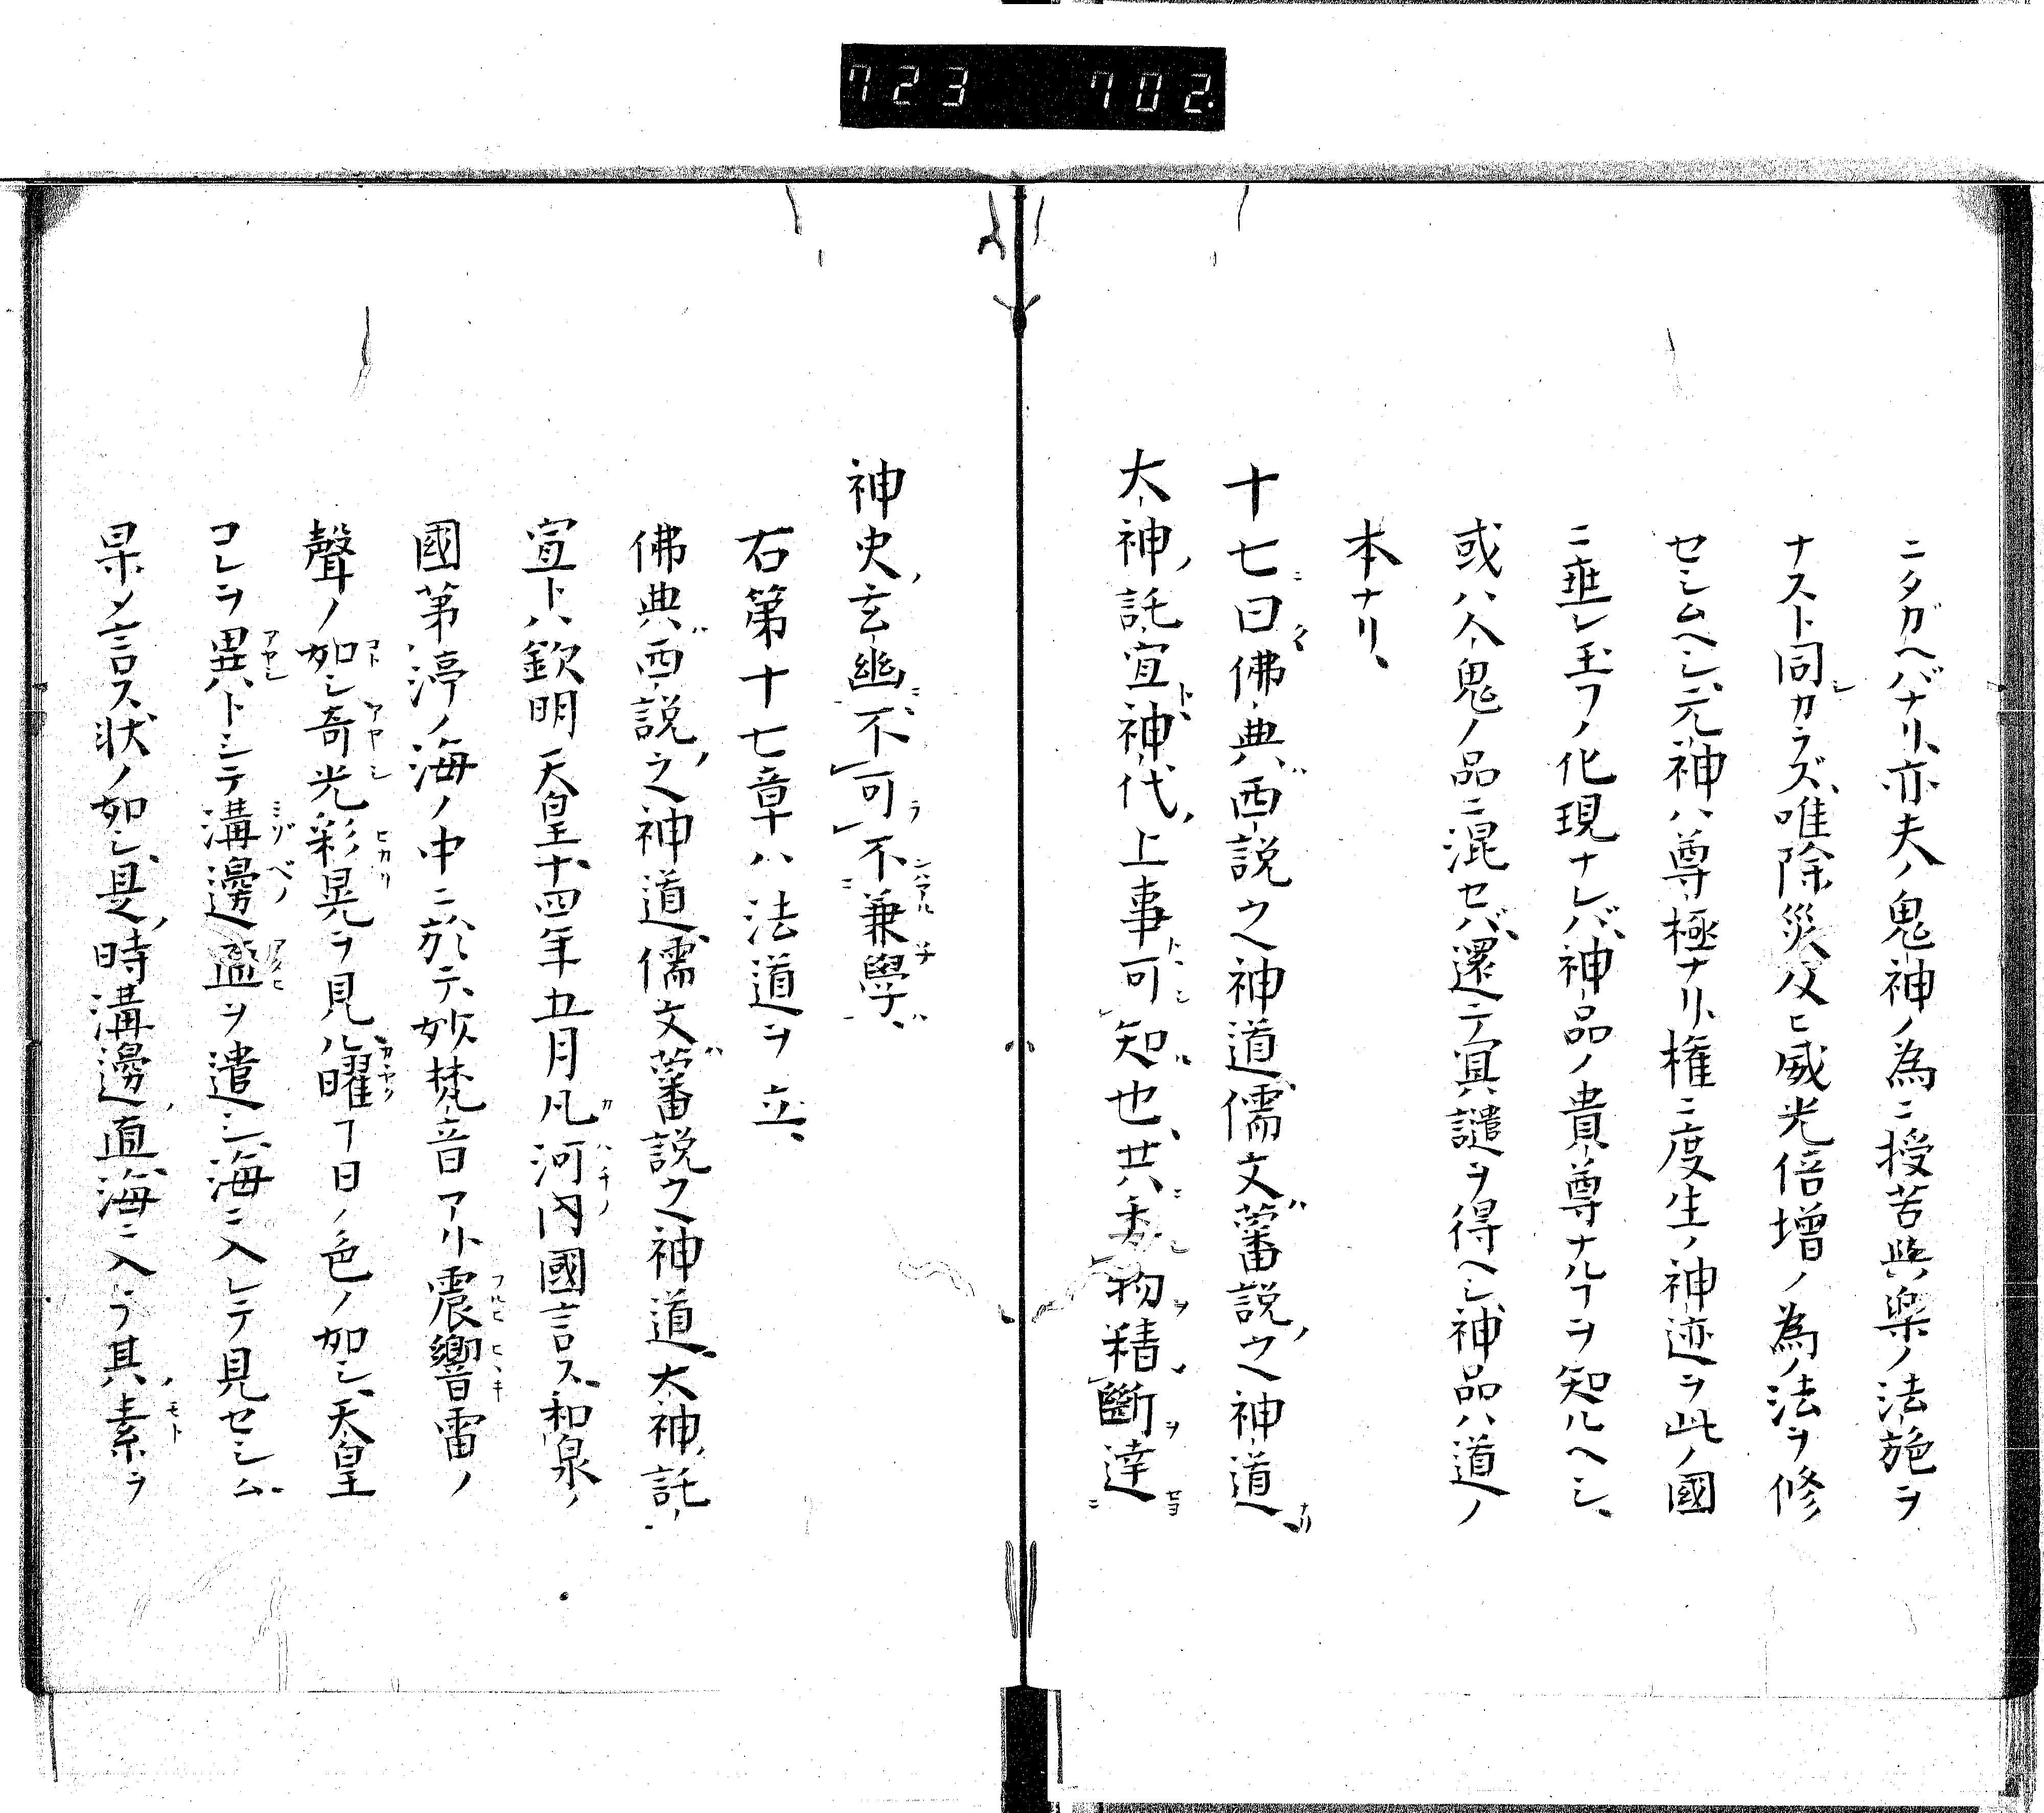 723 702.
ニタガヘバナリ、亦夫ノ鬼神ノ為ニ授苦與楽ノ法施ヲ
ナスト同カラズ、唯除災及ヒ威光倍増ノ為ノ法ヲ修
セシムヘシ、元神ハ尊極ナリ、権ニ度生ノ神迹ヲ此ノ國
ニ垂レ玉フノ化現ナレバ、神品ノ貴尊ナルヿヲ知ルヘシ、
或ハ人鬼ノ品ニ混セバ、還テ冥譴ヲ得ヘシ、神品ハ道ノ
本ナリ、
十七ニ曰ク佛典ハ西説之神道、儒文ハ蕃説之神道ナリ、
大神ノ託宣ト神代ノ上事ト可シ知ル也、共ニ委シ物ヲ精ク斷ヲ達セヨ
神史ノ玄幽ニ、不可ラ不ンハアル兼學チ、
右第十七章ハ法道ヲ立、
佛典ハ西説之神道、儒文ハ蕃説之神道、大神ノ託
宣トハ欽明天皇十四年五月凡河内國言ス、和泉ノ
國茅渟ノ海ノ中ニ於テ、妙梵音アリ、震響雷ノ
聲ノ如シ、奇光彩晃ヲ見ル、曜ヿ日ノ色ノ如シ、天皇
コレヲ異トシテ溝邊直ヲ遣シ、海ニ入レテ見セシム、
杲メ言ス状ノ如シ、是ノ時溝邊ノ直、海ニ入テ其ノ素ヲ